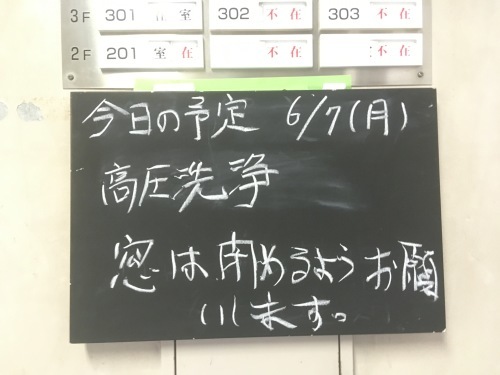 3F 301 在室 302 不在 303 不在
2F 201 室在 不在 不在
今日の予定 6/7(月)
高圧洗浄
窓は閉めるようお願
いします。